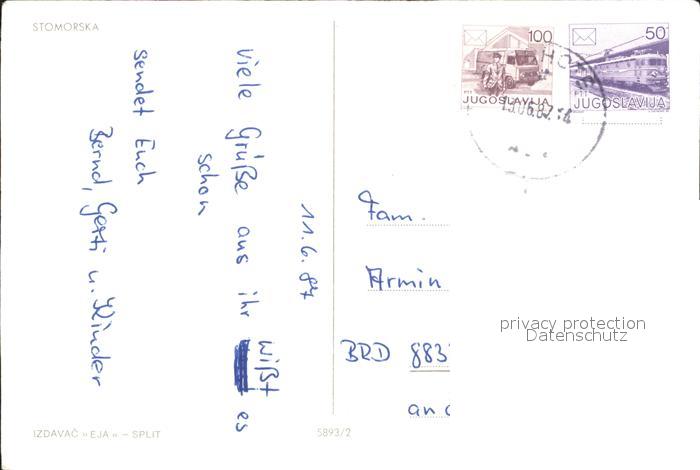 STOMORSKA
11.6.87
Viele Grüße aus ihr wißt es
schon
sendet Euch
Bernd, Gerti u. Kinder
IZDAVAČ »EJA« – SPLIT
5893/2
100
PTT
JUGOSLAVIJA
50
PTT
JUGOSLAVIJA
Fam.
Armin
BRD 883
an d
privacy protection
Datenschutz